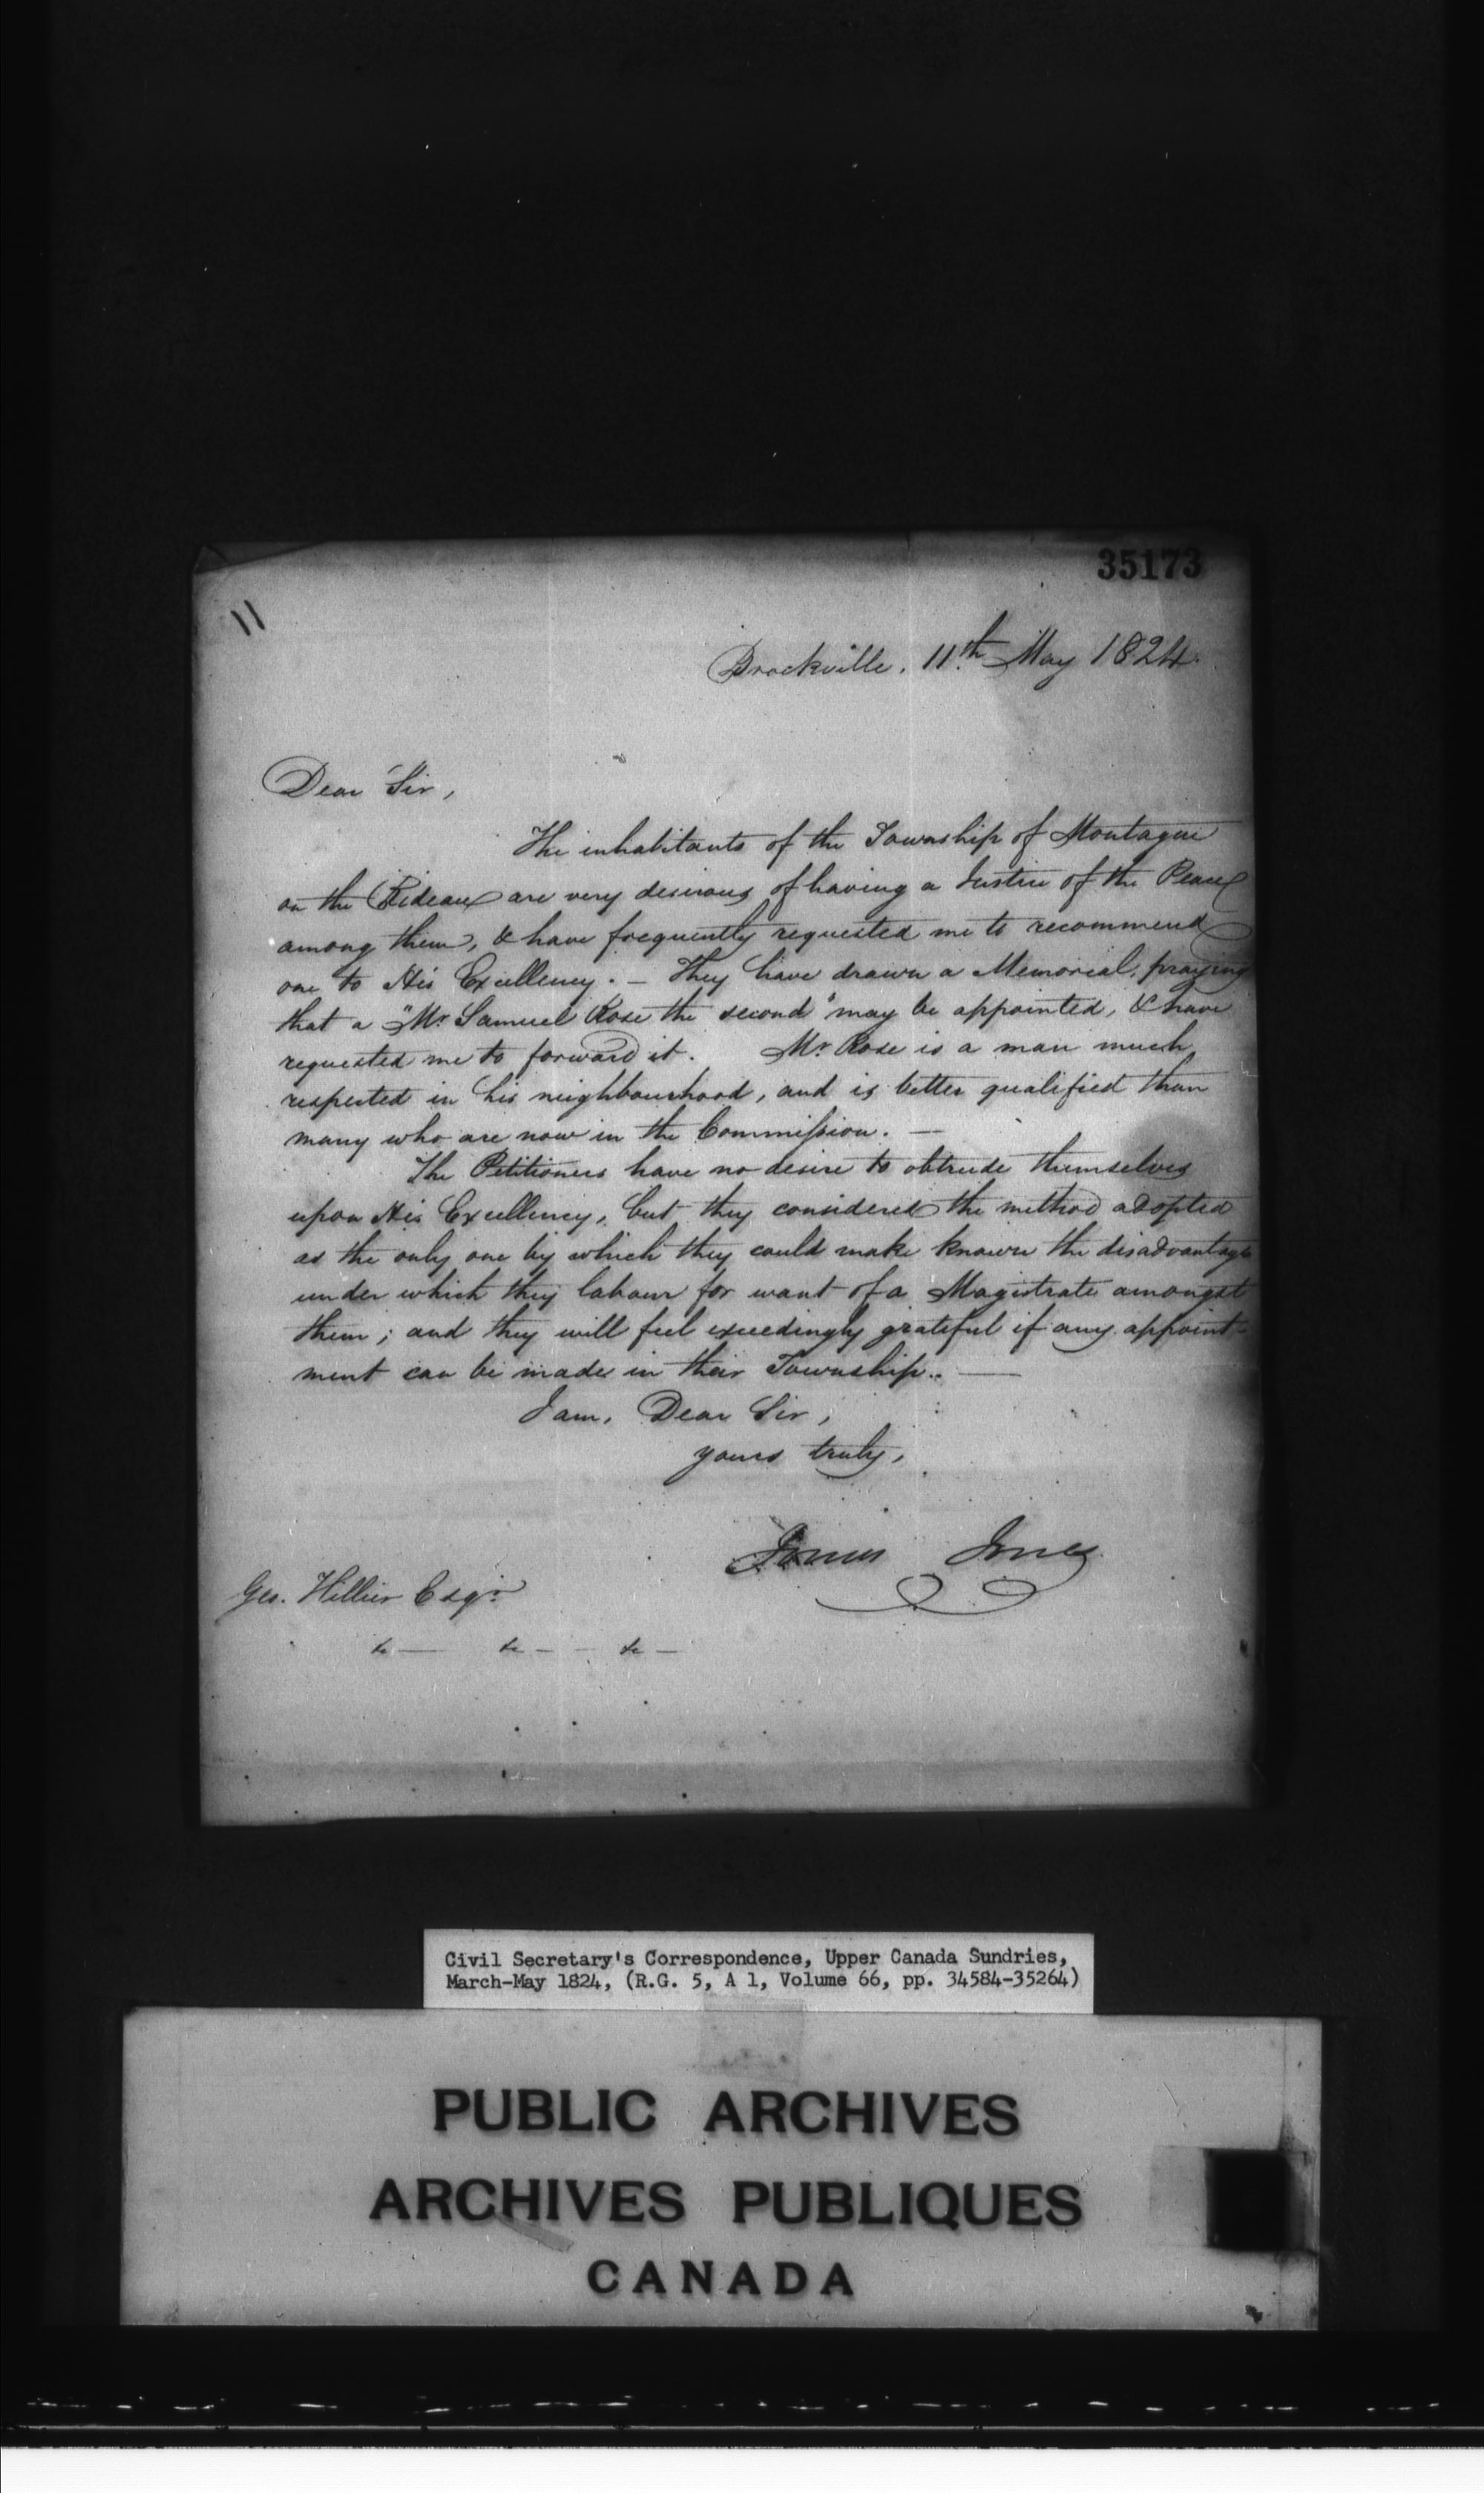 35173
11
Brockville. 11th May 1824.
Dear Sir,
The inhabitants of the Township of Montague
on the Rideau are very desirous of having a Justice of the Peace
among them, & have frequently requested me to recommend
one to His Excellency. — They have drawn a Memorial, praying
that a "Mr Samuel Rose the second" may be appointed, & have
requested me to forward it. Mr Rose is a man much
respected in his neighbourhood, and is better qualified than
many who are now in the Commission. —
The Petitioners have no desire to obtrude themselves
upon His Excellency, but they considered the method adopted
as the only one by which they could make known the disadvantages
under which they labour for want of a Magistrate amongst
them; and they will feel exceedingly grateful if any appoint-
ment can be made in their Township. —
I am, Dear Sir,
yours truly,
Jonas Jones
Geo. Hillier Esqr.
&c — &c — &c —
Civil Secretary's Correspondence, Upper Canada Sundries,
March-May 1824, (R.G. 5, A 1, Volume 66, pp. 34584-35264)
PUBLIC ARCHIVES
ARCHIVES PUBLIQUES
CANADA